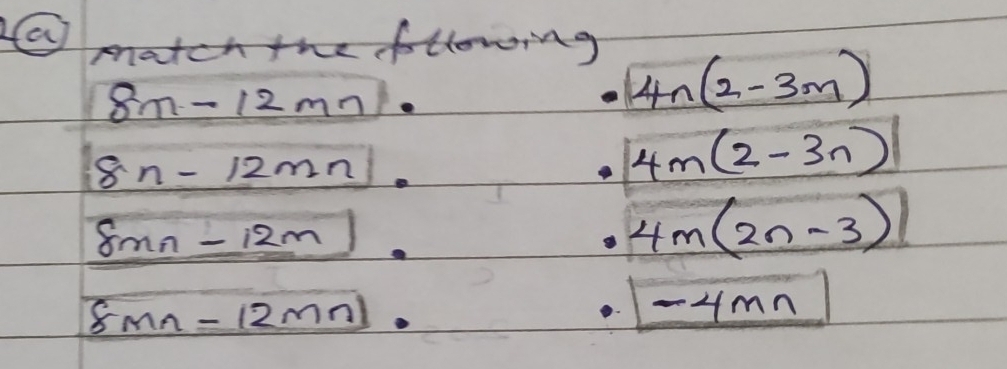 (a) match the following
8m - 12mn . . 4n(2-3m)
8n - 12mn . . 4m(2-3n)
8mn - 12m . . 4m(2n-3)
8mn - 12mn . . -4mn